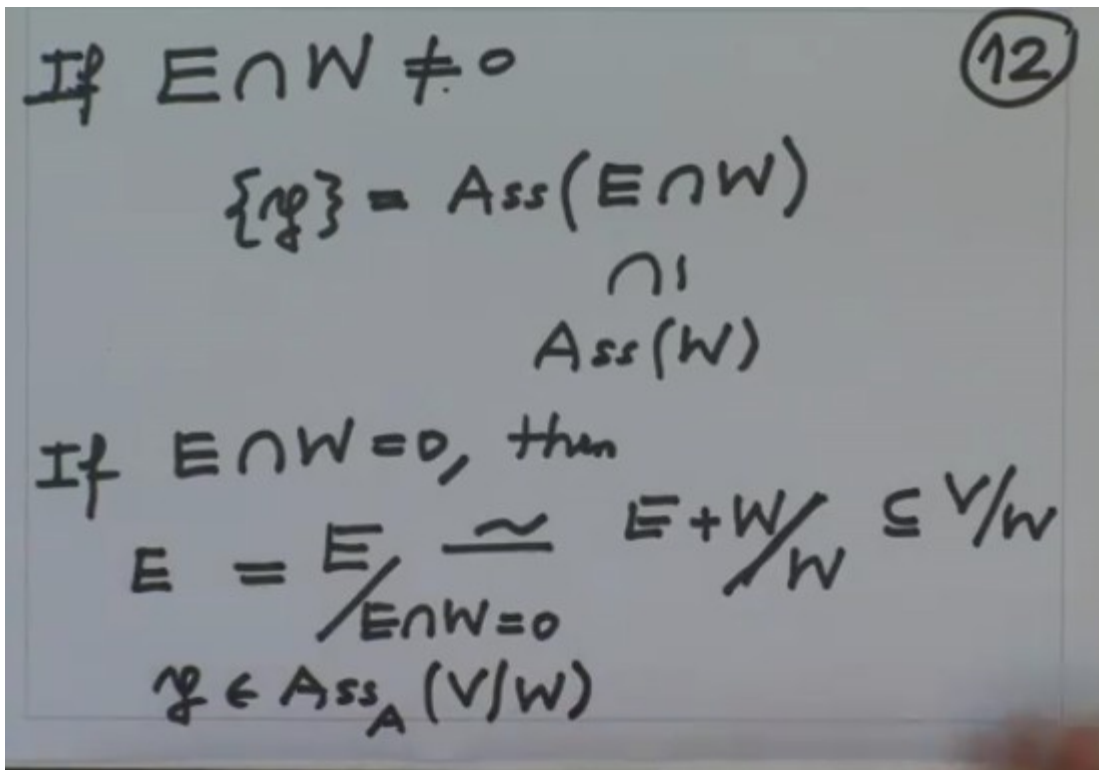 If E ∩ W ≠ 0
⑫
{𝔭} = Ass(E ∩ W)
∩ı
Ass(W)
If E ∩ W = 0, then
E = E/E∩W=0 ≃ E+W/W ⊆ V/W
𝔭 ∈ Ass_A (V/W)